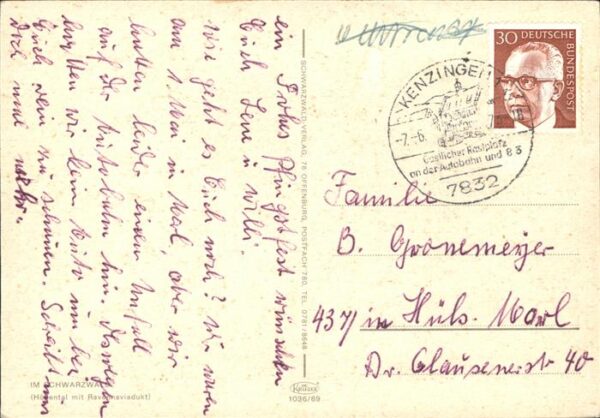 ein Frohes Pfingstfest wünschen
Euch Lene u. Willi.
Wie geht es Euch noch? Wir waren
am 1. Mai in Marl, aber wir
hatten leider einen Unfall
auf der Autobahn hin. Deswegen
hatten wir kein Auto um bei
Euch rein zu schauen. Schreibt uns
doch mal mehr.
IM SCHWARZWALD
(Höllental mit Ravennaviadukt)
SCHWARZWALD-VERLAG, 76 OFFENBURG, POSTFACH 760, TEL. 0781/8648
KRÜGER
1036/69
30 DEUTSCHE
BUNDESPOST
KENZINGEN
-7.-6.
Gastlicher Rastplatz
an der Autobahn und B 3
7832
Familie
B. Grönemeyer
437/ in Hüls-Marl
Dr. Clausenerstr 40